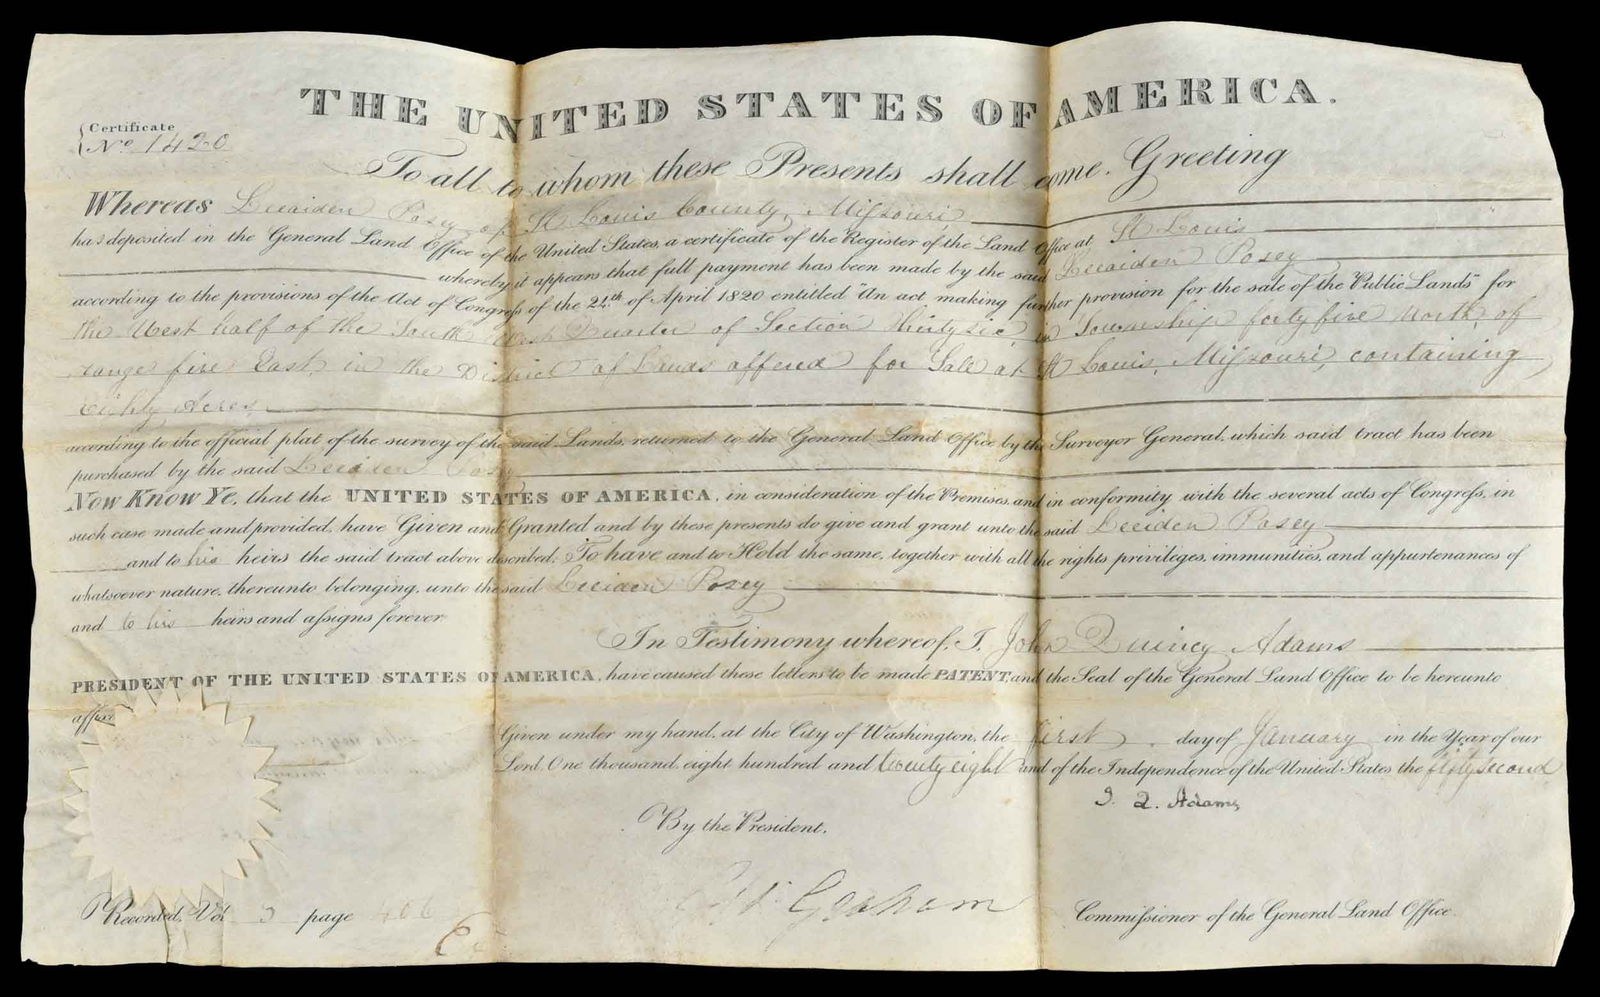 THE UNITED STATES OF AMERICA.
Certificate
No. 1420
To all to whom these Presents shall come, Greeting
Whereas Posey of St Louis County, Missouri,
has deposited in the General Land Office of the United States, a certificate of the Register of the Land Office at St Louis
whereby it appears that full payment has been made by the said Posey
according to the provisions of the Act of Congress of the 24th of April 1820 entitled "An act making further provision for the sale of the Public Lands" for
the West half of the South West Quarter of Section thirty six, in Township forty five North, of
range five East, in the District of Lands offered for Sale at St Louis, Missouri, containing
Eighty Acres,
according to the official plat of the survey of the said Lands, returned to the General Land Office by the Surveyor General, which said tract has been
purchased by the said Posey
Now Know Ye, that the UNITED STATES OF AMERICA, in consideration of the Premises, and in conformity with the several acts of Congress, in
such case made and provided, have Given and Granted and by these presents do give and grant unto the said Posey
and to his heirs the said tract above described; To have and to Hold the same, together with all the rights privileges, immunities, and appurtenances of
whatsoever nature, thereunto belonging, unto the said Posey
and to his heirs and assigns forever
In Testimony whereof, I, John Quincy Adams
PRESIDENT OF THE UNITED STATES OF AMERICA, have caused these letters to be made PATENT, and the Seal of the General Land Office to be hereunto
Given under my hand, at the City of Washington, the first day of January in the Year of our
Lord, One thousand, eight hundred and twenty eight and of the Independence of the United States the fifty second
J. Q. Adams
By the President.
Graham Commissioner of the General Land Office.
Recorded, Vol. 3 page 406